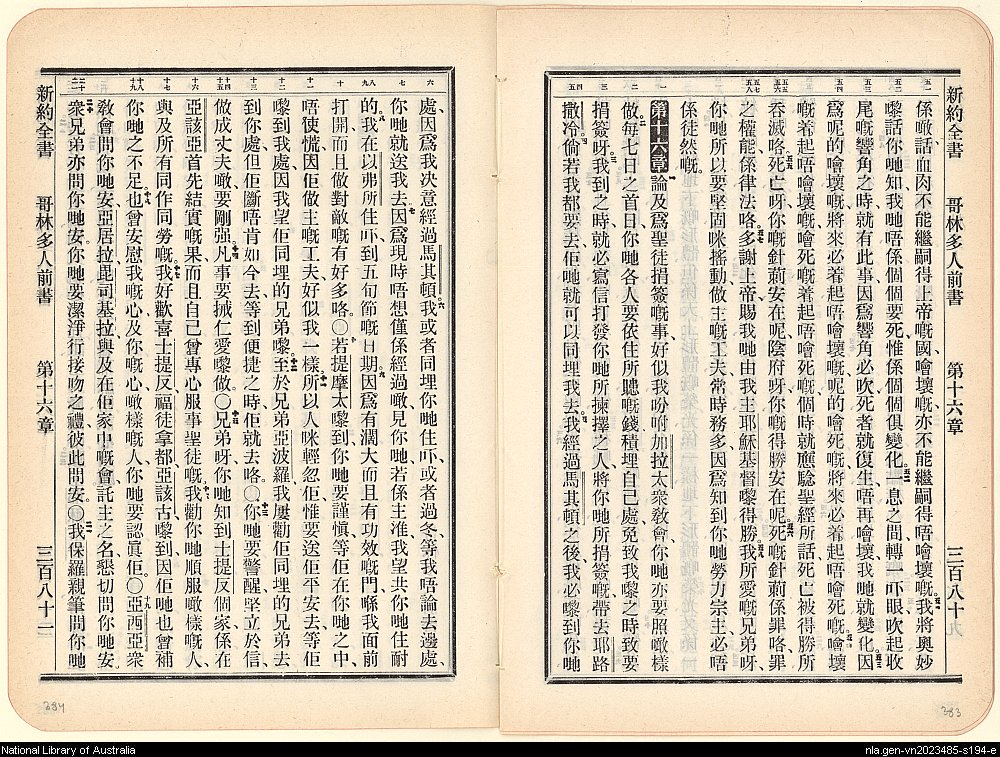 新約全書 哥林多人前書 第十六章 三百八十九
係噉話血肉不能繼嗣得上帝嘅國噲壞嘅亦不能繼嗣得唔噲壞嘅我將奧妙
嚟話你哋知我哋唔係個個要死惟係個個俱變化一息之間轉一吓眼吹起收
尾嘅響角之時就有此事因爲響角必吹死者就復生唔再噲壞我哋就變化因
爲呢的噲壞嘅將來必着起唔噲壞嘅呢的噲死嘅將來必着起唔噲死嘅噲壞
嘅着起唔噲壞嘅噲死嘅着起唔噲死嘅個時就應驗聖經所話死亡被得勝所
吞滅咯死亡呀你嘅針薊安在呢陰府呀你嘅得勝安在呢死嘅針薊係罪咯罪
之權能係律法咯多謝上帝賜我哋由我主耶穌基督嚟得勝我所愛嘅兄弟呀
你哋所以要堅固咪搖動做主嘅工夫常時務多因爲知到你哋勞力宗主必唔
係徒然嘅
第十六章論及爲聖徒捐簽嘅事好似我吩咐加拉太衆敎會你哋亦要照噉樣
做每七日之首日你哋各人要依住所聽嘅錢積埋自己處免致我嚟之時致要
捐簽呀我到之時就必寫信打發你哋所揀擇之人將你哋所捐簽嘅帶去耶路
撒冷倘若我都要去佢哋就可以同埋我去我經過馬其頓之後我必嚟到你哋
處因爲我決意經過馬其頓我或者同埋你哋住吓或者過冬等我唔論去邊處
你哋就送我去因爲現時唔想僅係經過噉見你哋若係主准我望共你哋住耐
的我在以弗所住吓到五旬節嘅日期因爲有濶大而且有功效嘅門喺我面前
打開而且做對敵嘅有好多咯〇若提摩太嚟到你哋要謹愼等佢在你哋之中
唔使慌因佢做主嘅工夫好似我一樣所以人咪輕忽佢惟要送佢平安去等佢
嚟到我處因我望佢同埋的兄弟嚟至於兄弟亞波羅我屢勸佢同埋的兄弟去
到你處但佢斷唔肯如今去等到便捷之時佢就去咯〇你哋要警醒堅立於信
做成丈夫噉要剛强凡事要搣仁愛嚟做〇兄弟呀你哋知到士提反個家係在
亞該亞首先結實嘅果而且自己曾專心服事聖徒嘅我勸你哋順服噉樣嘅人
與及所有同作同勞嘅我好歡喜士提反福徒拿都亞該古嚟到因佢哋也曾補
你哋之不足也曾安慰我嘅心及你嘅心噉樣嘅人你哋要認眞佢〇亞西亞衆
敎會問你哋安亞居拉毘司基拉與及在佢家中嘅會託主之名懇切問你哋安
衆兄弟亦問你哋安你哋要潔淨行接吻之禮彼此問安〇我保羅親筆問你哋
新約全書 哥林多人前書 第十六章 三百八十二
384
383
National Library of Australia
nla.gen-vn2023485-s194-e